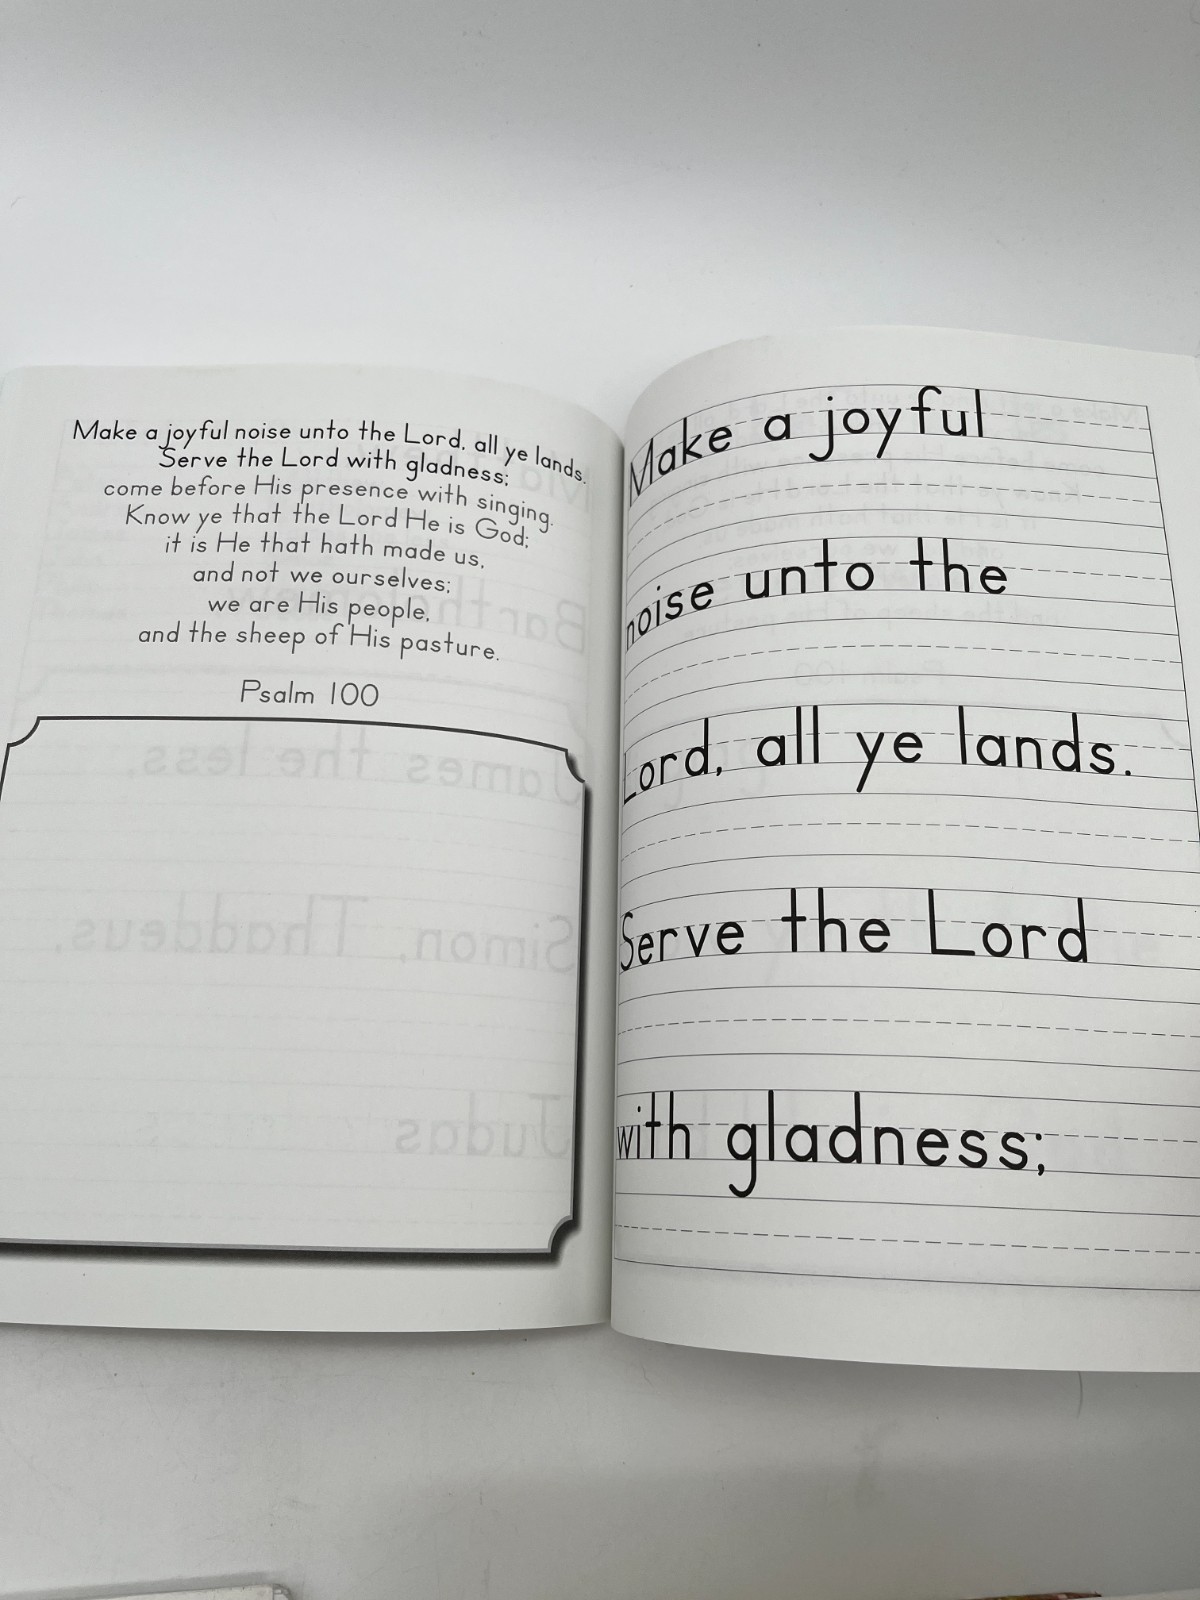 Make a joyful noise unto the Lord, all ye lands.
Serve the Lord with gladness;
come before His presence with singing.
Know ye that the Lord He is God;
it is He that hath made us,
and not we ourselves;
we are His people,
and the sheep of His pasture.
Psalm 100
James the less,
Simon, Thaddeus,
Judas
Make a joyful
noise unto the
Lord, all ye lands.
Serve the Lord
with gladness;